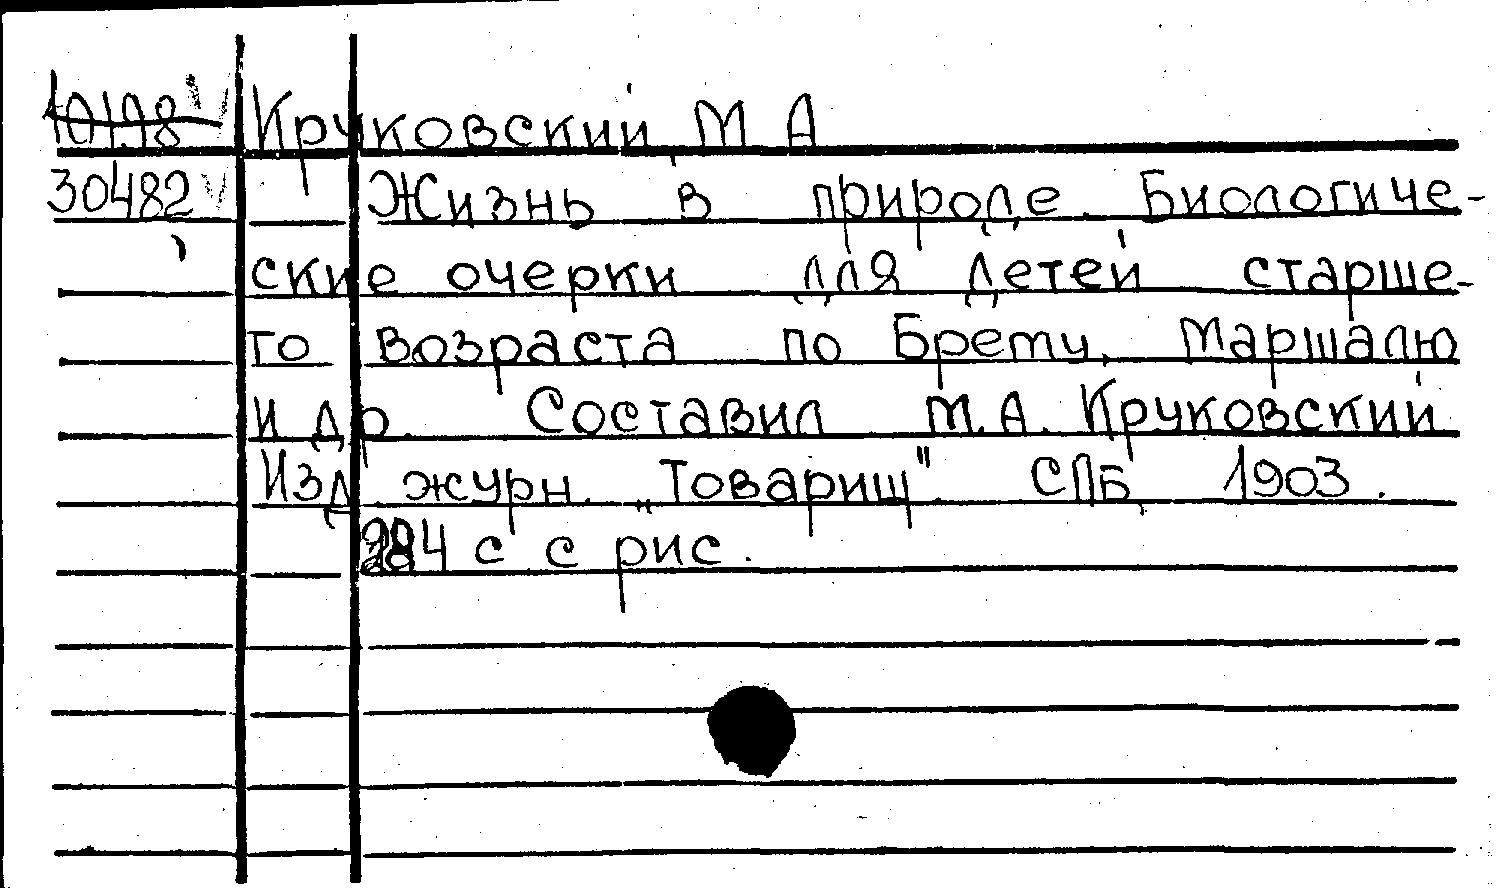 10198 Круковский М А
30482 Жизнь в природе. Биологиче-
ские очерки для детей старше-
го возраста по Брему, Маршалю
и др. Составил М.А. Круковский
Изд. журн. „Товарищ". СПБ, 1903.
284 с с рис.